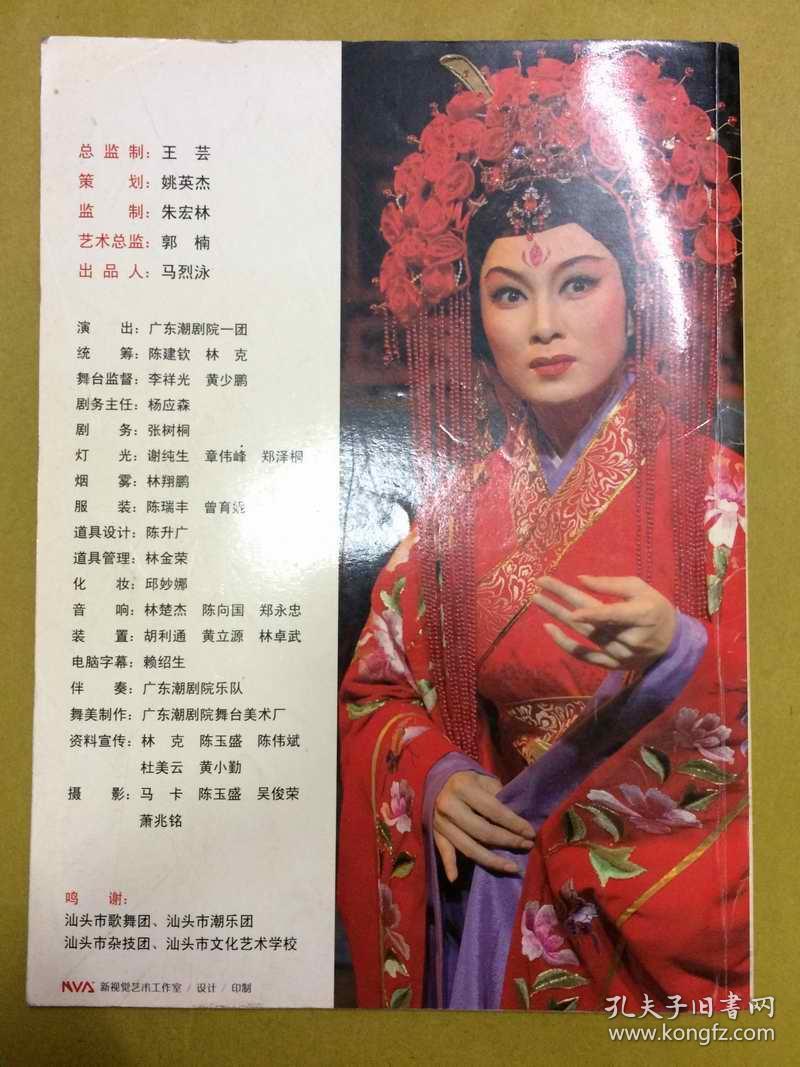 总监制：王 芸
策 划：姚英杰
监 制：朱宏林
艺术总监：郭 楠
出品人：马烈泳
演 出：广东潮剧院一团
统 筹：陈建钦 林 克
舞台监督：李祥光 黄少鹏
剧务主任：杨应森
剧 务：张树桐
灯 光：谢纯生 章伟峰 郑泽桐
烟 雾：林翔鹏
服 装：陈瑞丰 曾育妮
道具设计：陈升广
道具管理：林金荣
化 妆：邱妙娜
音 响：林楚杰 陈向国 郑永忠
装 置：胡利通 黄立源 林卓武
电脑字幕：赖绍生
伴 奏：广东潮剧院乐队
舞美制作：广东潮剧院舞台美术厂
资料宣传：林 克 陈玉盛 陈伟斌
杜美云 黄小勤
摄 影：马 卡 陈玉盛 吴俊荣
萧兆铭
鸣 谢：
汕头市歌舞团、汕头市潮乐团
汕头市杂技团、汕头市文化艺术学校
NVA 新视觉艺术工作室 / 设计 / 印制
孔夫子旧书网
www.kongfz.com